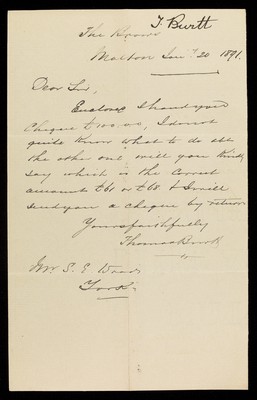 T. Burtt
The Brows
Malton Jany. 20 1891.
Dear Sir,
Enclosed I hand you
Cheque £100.0.0, I do not
quite know what to do abt
the other one will you kindly
say which is the correct
amount £61 or £68. & I will
send you a cheque by return
Yours faithfully
Thomas
Mr. S. E
York